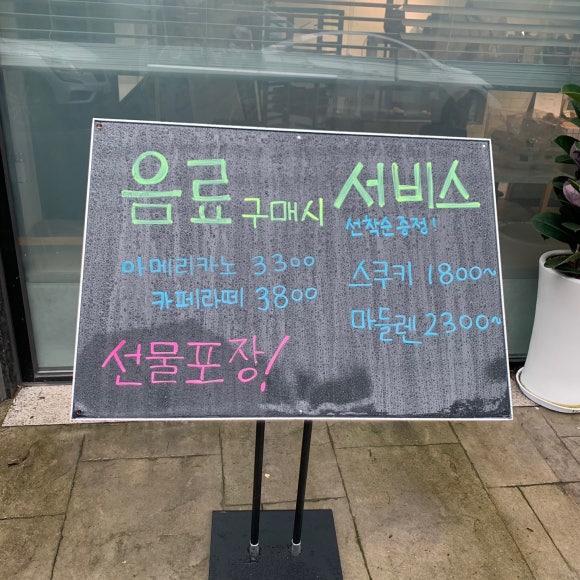 음료 구매시 서비스
선착순증정!
아메리카노 3300
카페라떼 3800
스쿠키 1800~
마들렌 2300~
선물포장!